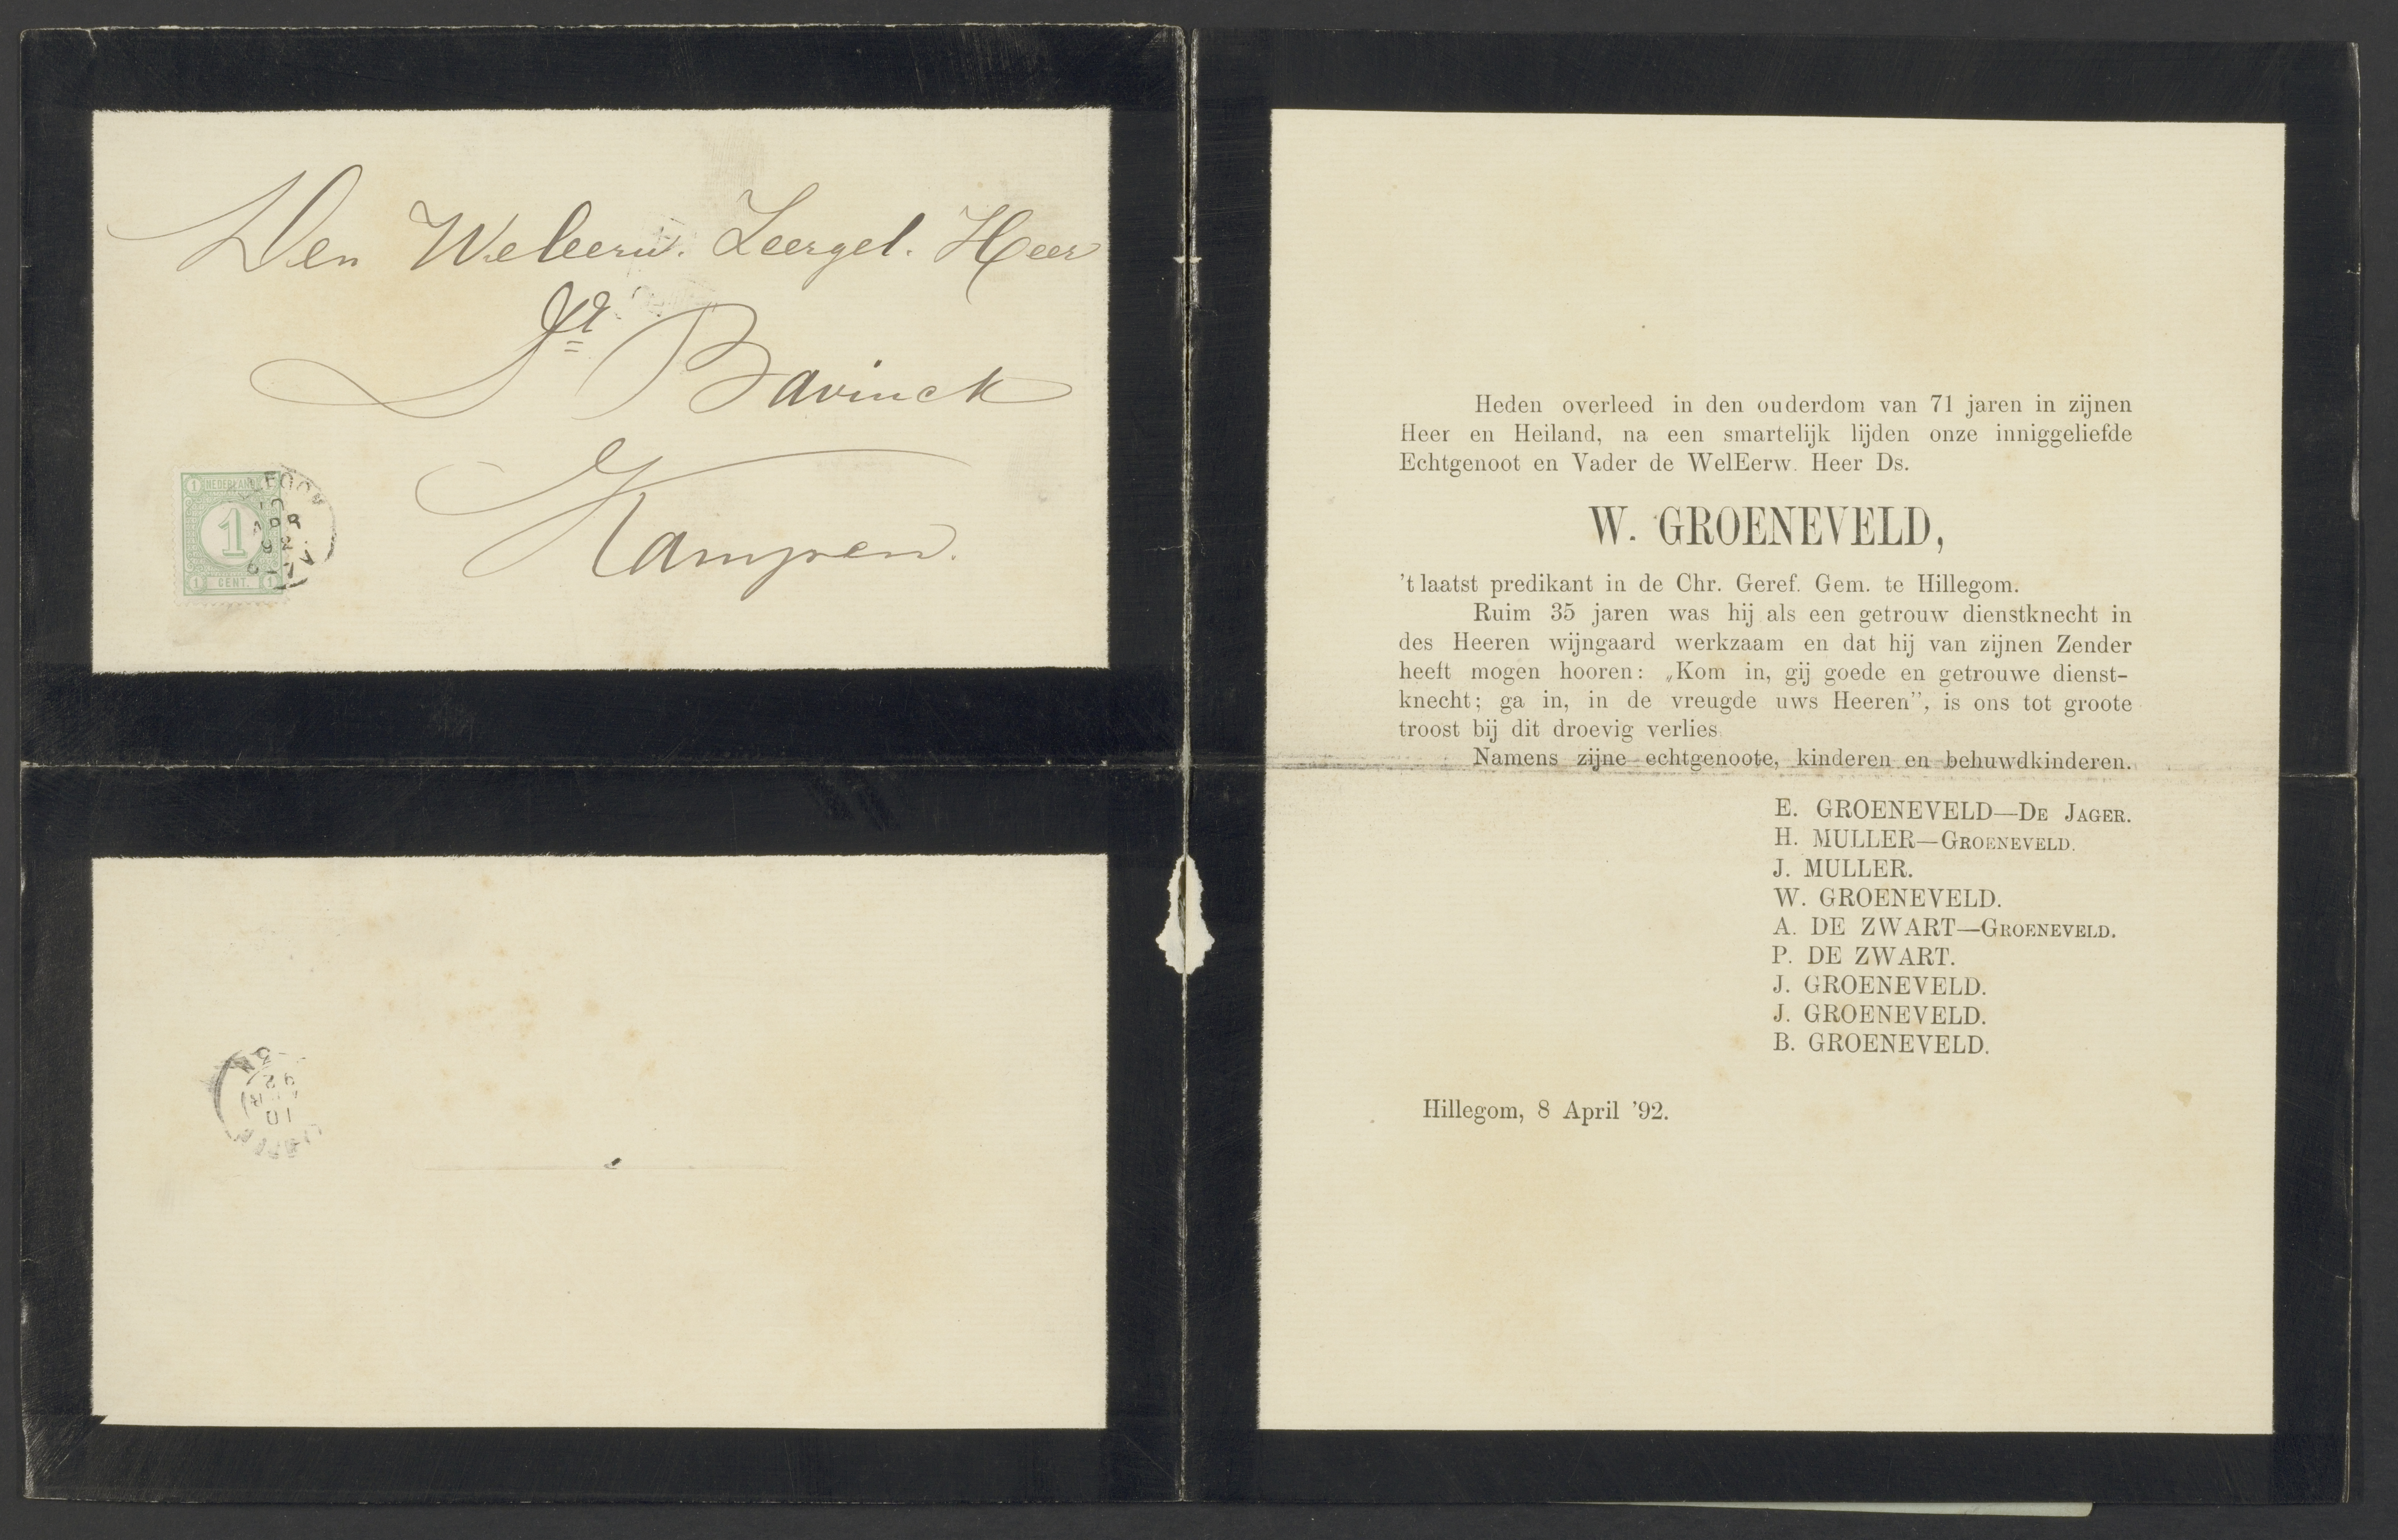 Den Weleerw. Leergel. Heer
Dr Bavinck
Kampen.
NEDERLAND
1 1
1
1 CENT. 1
10
APR
92
Heden overleed in den ouderdom van 71 jaren in zijnen
Heer en Heiland, na een smartelijk lijden onze inniggeliefde
Echtgenoot en Vader de WelEerw. Heer Ds.
W. GROENEVELD,
't laatst predikant in de Chr. Geref. Gem. te Hillegom.
Ruim 35 jaren was hij als een getrouw dienstknecht in
des Heeren wijngaard werkzaam en dat hij van zijnen Zender
heeft mogen hooren: „Kom in, gij goede en getrouwe dienst-
knecht; ga in, in de vreugde uws Heeren”, is ons tot groote
troost bij dit droevig verlies
Namens zijne echtgenoote, kinderen en behuwdkinderen.
E. GROENEVELD—DE JAGER.
H. MULLER—GROENEVELD.
J. MULLER.
W. GROENEVELD.
A. DE ZWART—GROENEVELD.
P. DE ZWART.
J. GROENEVELD.
J. GROENEVELD.
B. GROENEVELD.
Hillegom, 8 April '92.